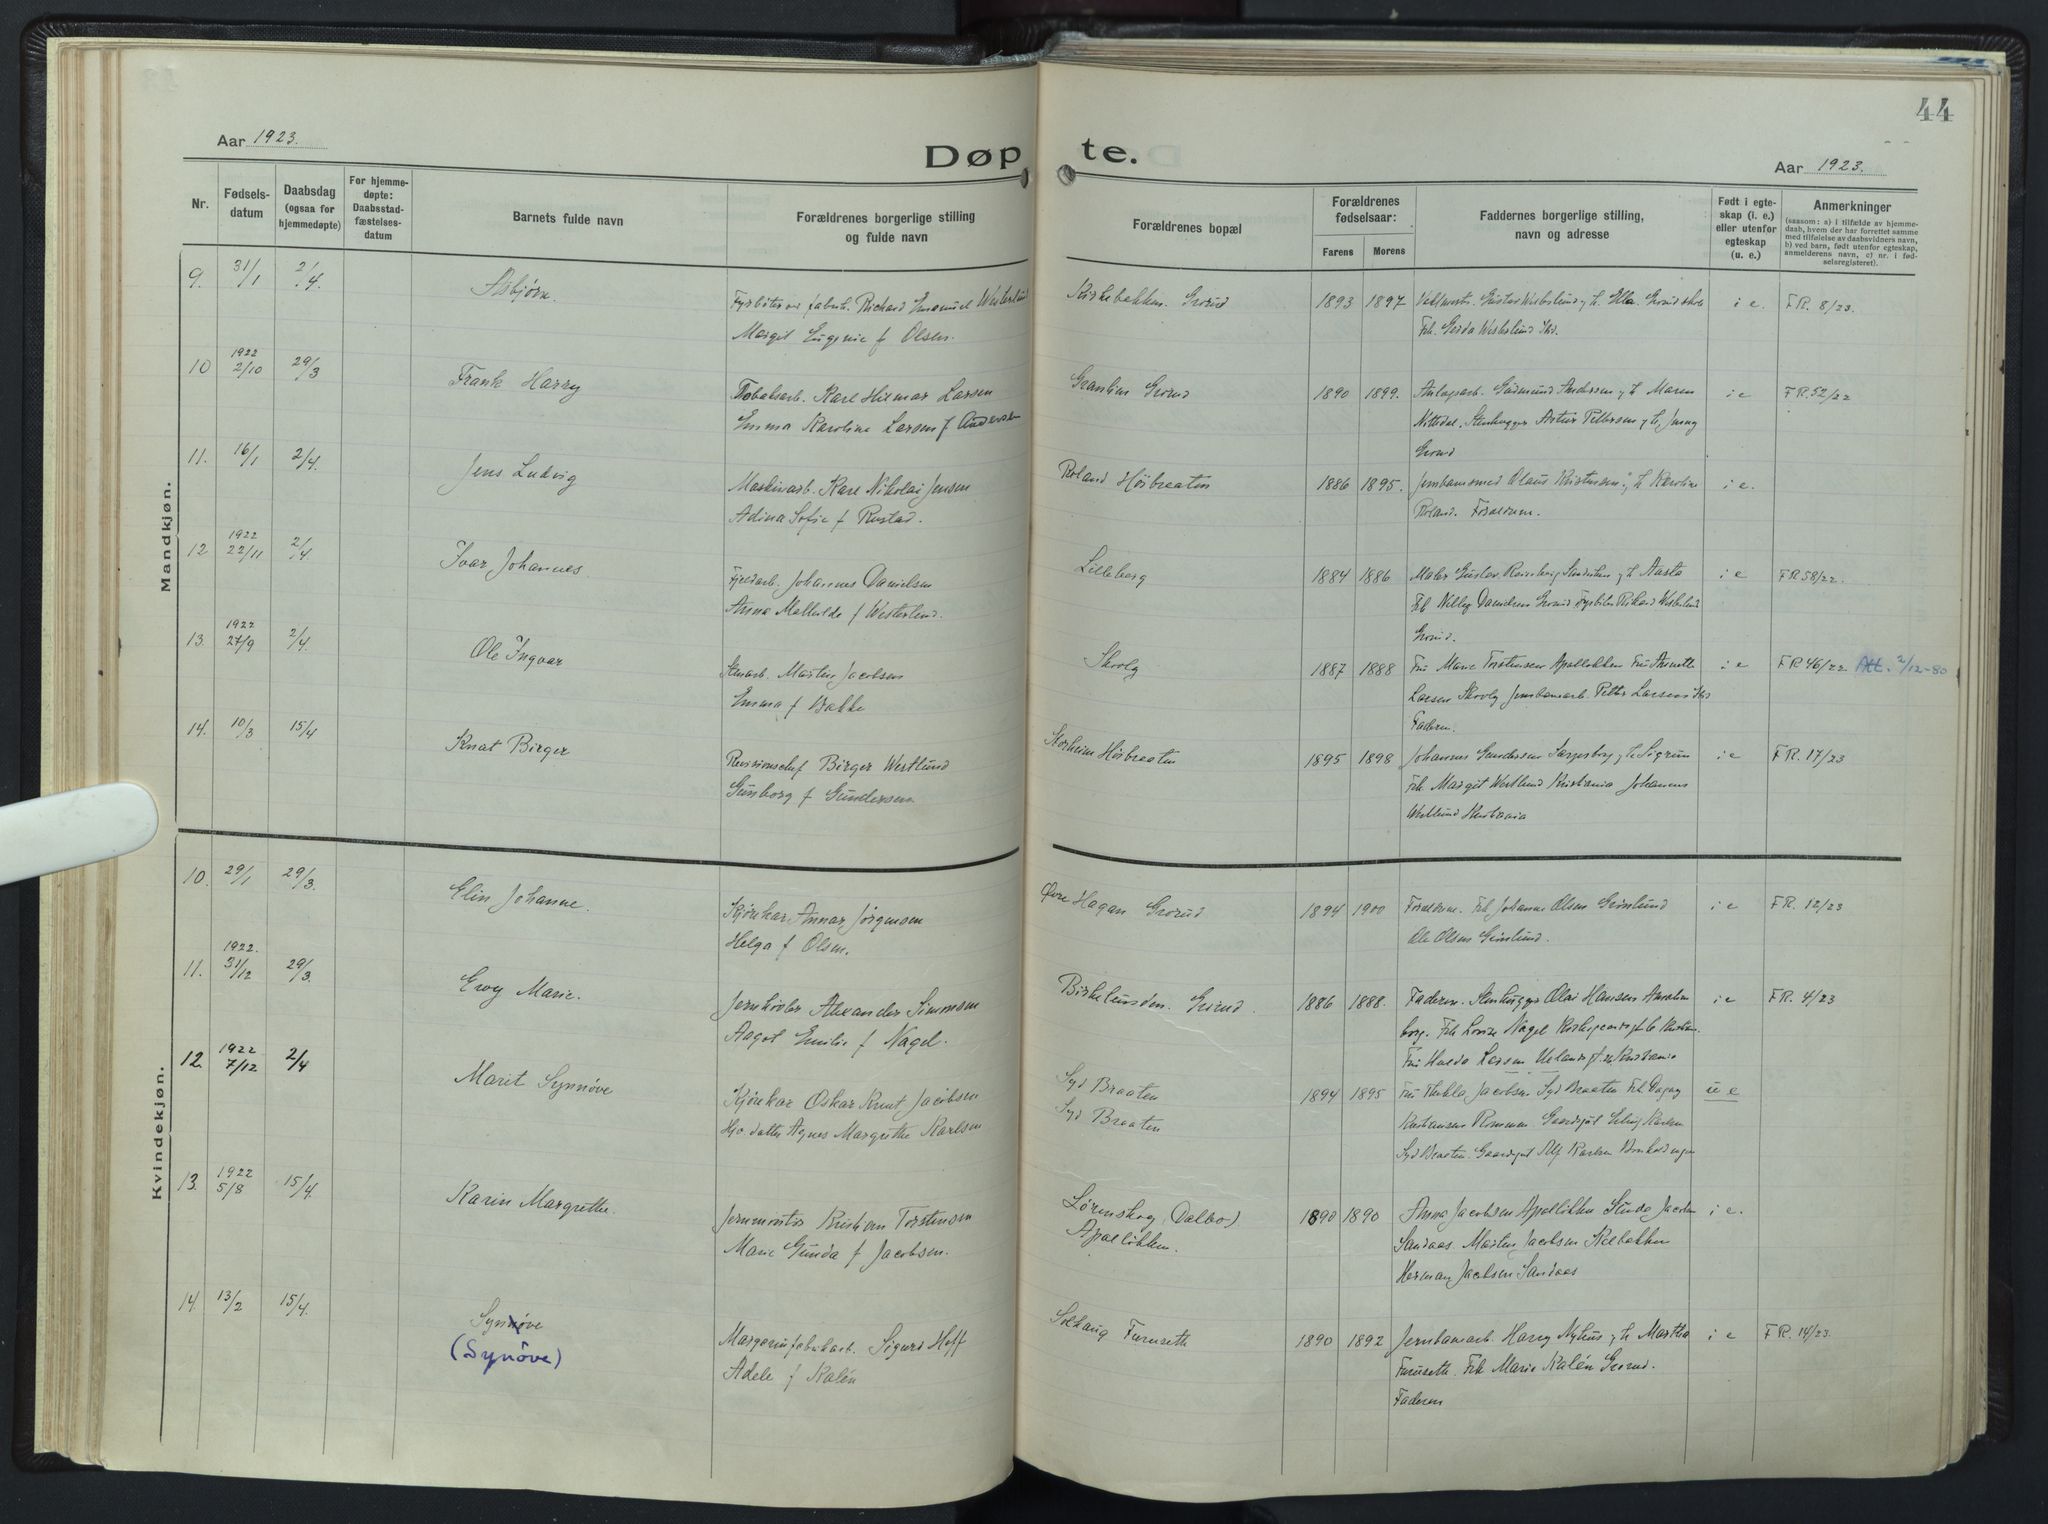 44
Aar 1923.
Døpte.
Aar 1923.
Nr.
Fødselsdatum
Daabsdag (ogsaa for hjemmedøpte)
For hjemmedøpte: Daabsstadfæstelsesdatum
Barnets fulde navn
Forældrenes borgerlige stilling og fulde navn
Forældrenes bopæl
Forældrenes fødselsaar:
Farens
Morens
Faddernes borgerlige stilling, navn og adresse
Født i egteskap (i. e.) eller utenfor egteskap (u. e.)
Anmerkninger
(saasom: a) i tilfælde av hjemmedaab, hvem der har forrettet samme med tilføielse av daabsvidners navn, b) ved barn, født utenfor egteskap, anmelderens navn, c) nr. i fødselsregisteret).
Mandkjøn.
9. 31/1 2/4. Asbjørn. Fyrbøter ved fabrik. Richard Emanuel Westerlund Kirkebakken Grorud 1893 1897 i e. FR. 8/23.
Margit Eugenie f Olsen. Frk. Gerda Westerlund
10 1922 2/10 29/3 Frank Harry Tobaksarb. Karl Hilmar Larsen Granlien Grorud 1890 1899. Anlægsarb. Gudmund Andersen Maren i e FR. 52/22
Emma Karoline Larsen f Andersen Nittedal. Stenhugger Artur Pettersen
Grorud
11. 16/1 2/4. Jens Ludvig Maskinarb. Karl Nikolai Jensen Roland Høibraaten 1886 1895. Jernbanesmed Olaus Kristensen Karoline i e.
Adina Sofie f Rustad. Roland. Forældrene.
12 1922 22/11 2/4 Ivar Johannes Fjeldarb. Johannes Danielsen Lilleberg 1884 1886 Maler Gustav Aasta i e FR. 58/22.
Anna Mathilde f Westerlund. Frk Danielsen Grorud Fyrbøter Rikard Westerlund
Grorud.
13. 1922 27/9 2/4. Ole Ingvar Stenarb. Martin Jacobsen Skovly 1887 1888 Fru Marie Torstensen Apalløkken Fru Annette i e FR 46/22 Att. 2/12-80
Emma f Bakke Larsen Skovly Jernbanearb. Petter Larsen
Faderen.
14. 10/3 15/4 Knut Birger Revisionschef Birger Westlund Storheim Høibraaten 1895 1898 Johannes Gundersen Sarpsborg Sigrun i e FR. 17/23
Gunborg f Gundersen Frk Margit Westlund Kristiania Johannes
Westlund Kristiania
Kvindekjøn.
10. 29/1 29/3. Elin Johanne. Kjørekar Annar Jörgensen Øvre Hagan Grorud 1894 1900 Forældrene. Frk Johanne Olsen Grønlund i e FR. 12/23
Helga f Olsen. Ole Olsen Grønlund.
11. 1922. 31/12 29/3. Evy Marie. Jernhøvler Alexander Simonsen Birkelunden. Grorud. 1886 1888. Faderen. Stenhugger Olai Hansen i e FR. 4/23
Aagot Emilie f Nagel. borg. Frk Lovise Nagel
Fru Hulda Larsen Kristiania
12. 1922 7/12 2/4 Marit Synnöve Kjørekar Oskar Knut Jacobsen Syd Braaten 1894 1895 Fru Thekla Jacobsen Syd Braaten Frk Dagny u e
Hjv. datter Agnes Margrethe Karlsen Syd Braaten Kristiansen Rommen. Gaardsgut Karlsen
Syd Braaten. Gaardsgut Alf Karlsen
13. 1922 5/8 15/4. Karin Margrethe. Jernmontør Kristian Torstensen Lørenskog (Dalbo) 1890 1890 Anna Jacobsen Apalløkken Jacobsen i e.
Marie Gunda f Jacobsen. Apalløkken. Sandaas. Martin Jacobsen Kalbakken
Herman Jacobsen Sandaas
14. 13/2 15/4. Synnøve Margarinfabrikarb. Sigurd Hoff Solhaug Furuseth 1890 1892 Jernbanearb. Harry Nyhus Martha i e FR. 14/23.
(Synøve) Adele f Kalén Furuseth. Frk Marie Kalén Grorud.
Faderen